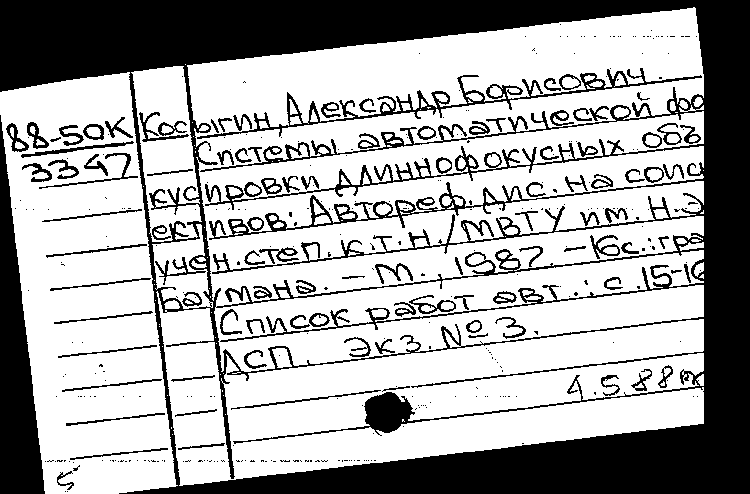 88-50К
3347
Косыгин, Александр Борисович.
Системы автоматической фо
кусировки длиннофокусных объ
ективов: Автореф. дис. на соиск
учен. степ. к.т.н. / МВТУ им. Н.Э
Баумана. – М., 1987. – 16с.: гра
Список работ авт.: с. 15-16
ДСП. Экз. № 3.
4.5.88
5